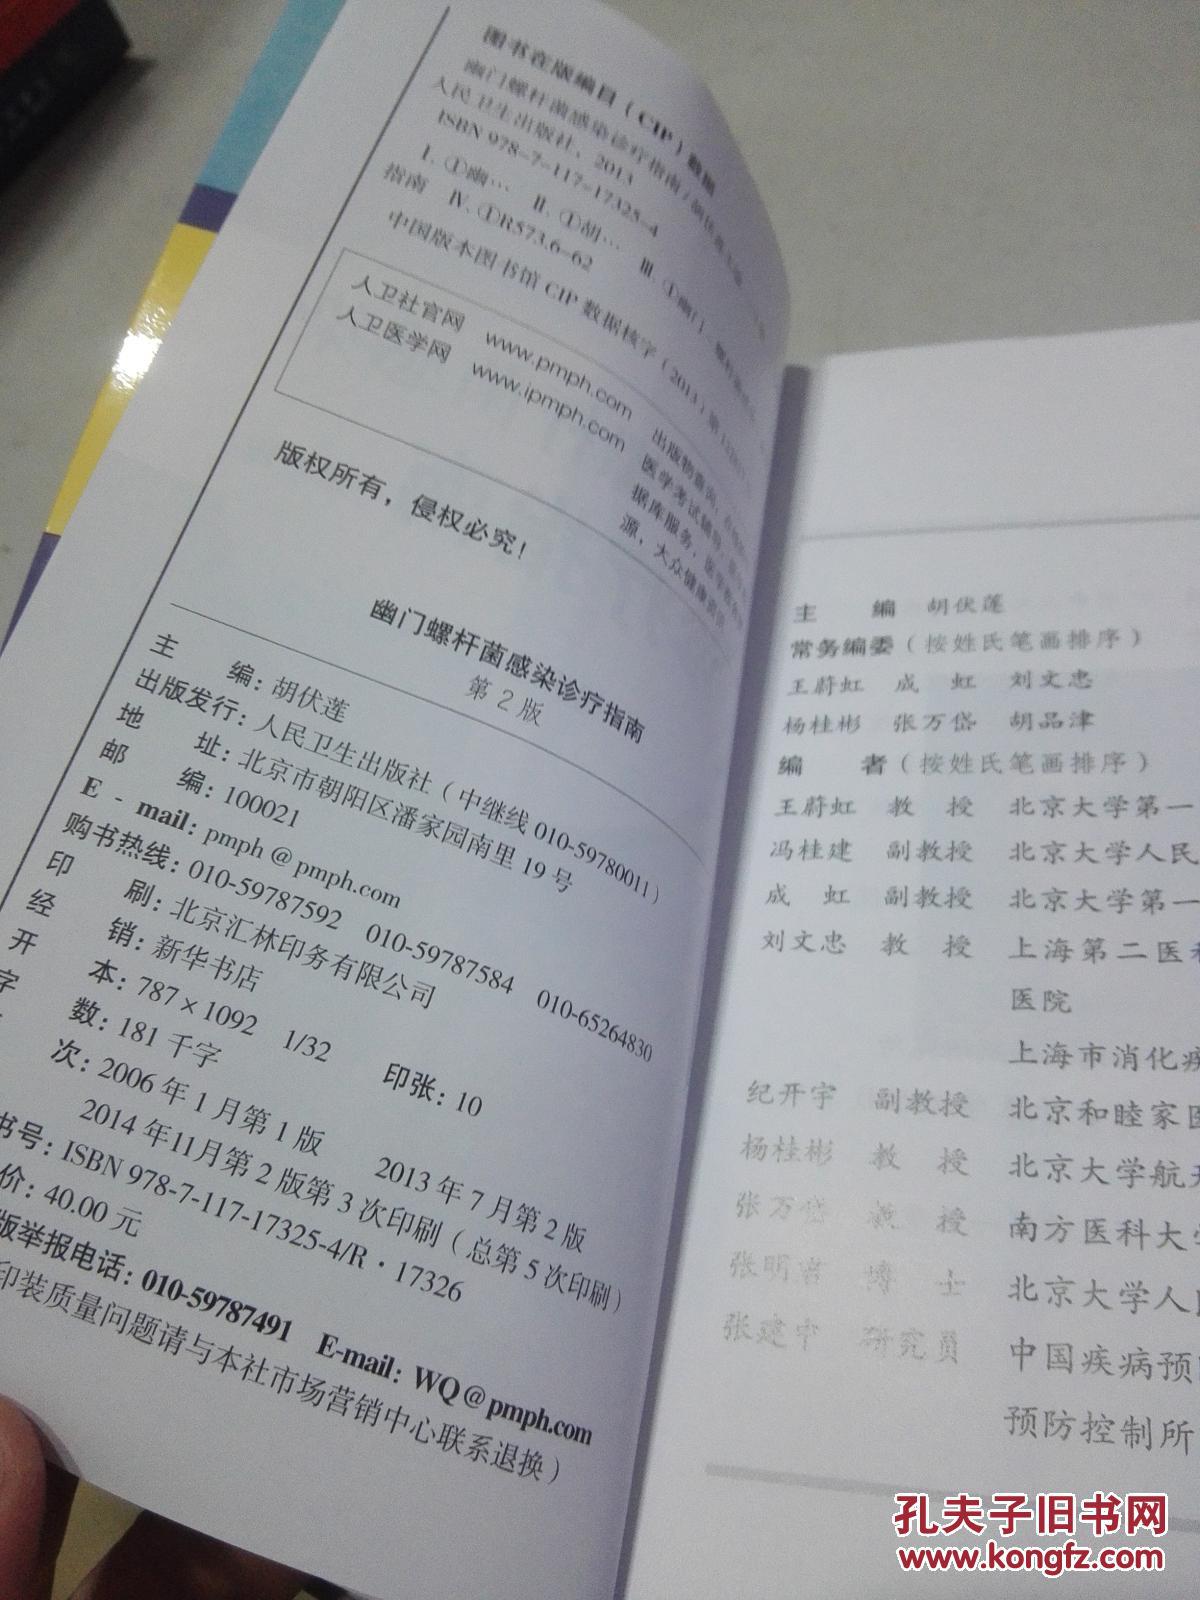 图书在版编目（CIP）数据
幽门螺杆菌感染诊疗指南/胡伏莲主编
人民卫生出版社，2013
ISBN 978-7-117-17325-4
Ⅰ. ①幽… Ⅱ. ①胡… Ⅲ. ①幽门
指南 Ⅳ. ①R573.6-62
中国版本图书馆 CIP 数据核字（2013）第
人卫社官网 www.pmph.com 出版物查询，
人卫医学网 www.ipmph.com 医学考试辅导，
据库服务，医学教育资
源，大众健康资讯
版权所有，侵权必究！
幽门螺杆菌感染诊疗指南
第 2 版
主 编：胡伏莲
出版发行：人民卫生出版社（中继线 010-59780011）
地 址：北京市朝阳区潘家园南里 19 号
邮 编：100021
E - mail：pmph @ pmph.com
购书热线：010-59787592 010-59787584 010-65264830
印 刷：北京汇林印务有限公司
经 销：新华书店
开 本：787×1092 1/32 印张：10
字 数：181 千字
次：2006 年 1 月第 1 版 2013 年 7 月第 2 版
2014 年11月第 2 版第 3 次印刷（总第 5 次印刷）
书号：ISBN 978-7-117-17325-4/R · 17326
价：40.00 元
版举报电话：010-59787491 E-mail：WQ @ pmph.com
印装质量问题请与本社市场营销中心联系退换）
主 编 胡伏莲
常务编委（按姓氏笔画排序）
王蔚虹 成 虹 刘文忠
杨桂彬 张万岱 胡品津
编 者（按姓氏笔画排序）
王蔚虹 教 授 北京大学第一
冯桂建 副教授 北京大学人民
成 虹 副教授 北京大学第一
刘文忠 教 授 上海第二医科
医院
上海市消化疾
纪开宇 副教授 北京和睦家医
杨桂彬 教 授 北京大学航天
张万岱 教 授 南方医科大学
张明君 博 士 北京大学人民
张建中 研究员 中国疾病预防
预防控制所
孔夫子旧书网
www.kongfz.com